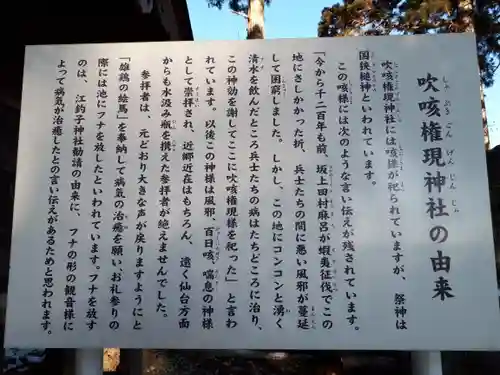 吹咳権現神社の由来
しゅぶきごんげんじんじゃ
吹咳権現神社には咳様が祀られていますが、祭神は
国狭槌神といわれています。
この咳様には次のような言い伝えが残されています。
「今から千二百年も前、坂上田村麻呂が蝦夷征伐でこの
地にさしかかった折、兵士たちの間に悪い風邪が蔓延
して困窮しました。しかし、この地にコンコンと湧く
清水を飲んだところ兵士たちの病はたちどころに治り、
この神効を謝してここに吹咳権現様を祀った」と言わ
れています。以後この神様は風邪、百日咳、喘息の神様
として崇拝され、近郷近在はもちろん、遠く仙台方面
からも水汲み瓶を携えた参拝者が絶えませんでした。
参拝者は、元どおり大きな声が戻りますようにと
「雄鶏の絵馬」を奉納して病気の治癒を願い、お礼参りの
際には池にフナを放したといわれています。フナを放す
のは、江釣子神社勧請の由来に、フナの形の観音様に
よって病気が治癒したとの言い伝えがあるためと思われます。